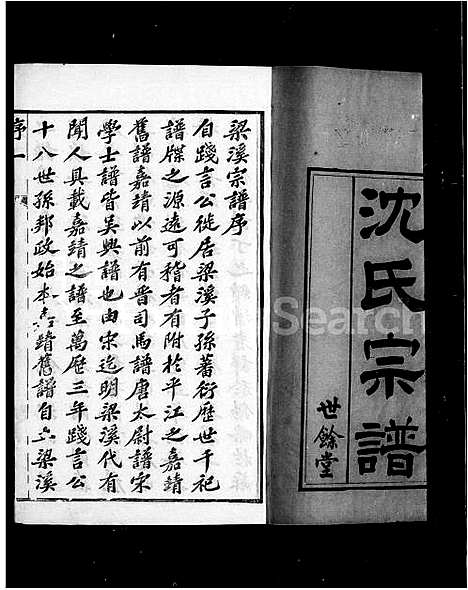 沈氏宗譜
世餘堂
梁溪宗譜序
自踐言公徙居梁溪子孫蕃衍歷世千祀
譜牒之源遠可稽者有附於平江之嘉靖
舊譜嘉靖以前有晋司馬譜唐太尉譜宋
學士譜皆吳興譜也由宋迄明梁溪代有
聞人具載嘉靖之譜至萬歷三年踐言公
十八世孫邦政始本嘉靖舊譜自六梁溪
序一
Search